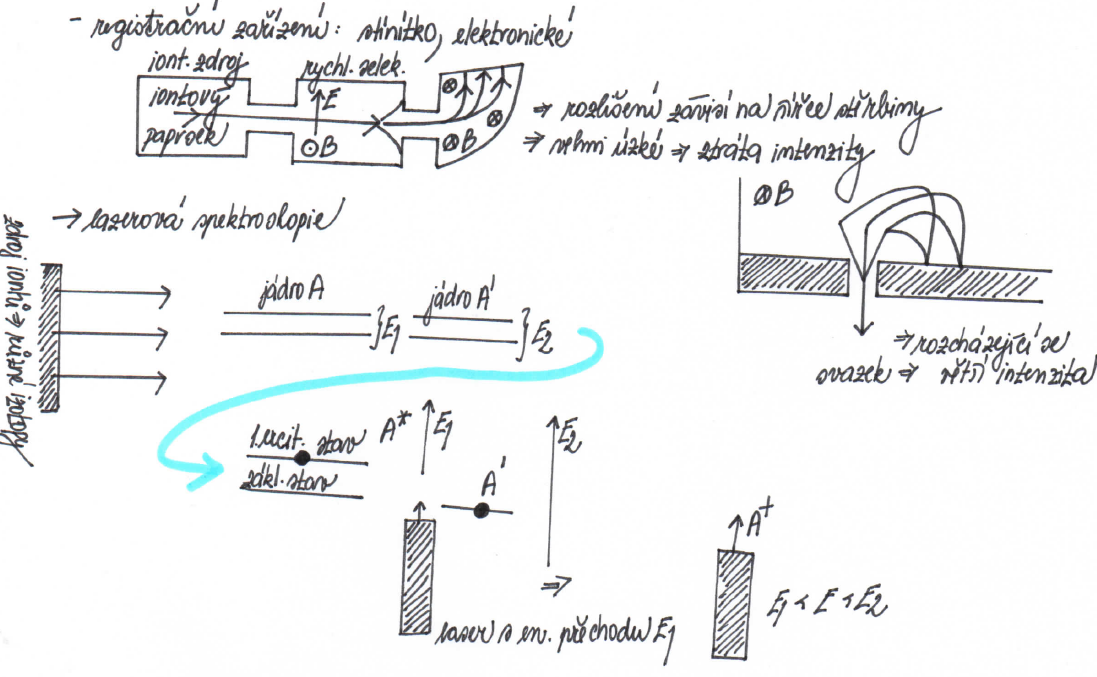 - registrační zařízení: stínítko, elektronické
iont. zdroj
rychl. selek.
iontový
paprsek
E
⊙B
⊗
⊗
⊗B
⇒ rozlišení závisí na šířce štěrbiny
⇒ velmi úzké ⇒ ztráta intenzity
⊗B
⇒ rozcházející se
svazek ⇒ větší intenzita
→ lazerová spektroskopie
zdroj iontů → různé izotopy
jádro A
}E1
jádro A'
}E2
1. excit. stav
zákl. stav
A*
E1
A'
E2
⇒
laser s en. přechodu E1
A+
E1 < E < E2